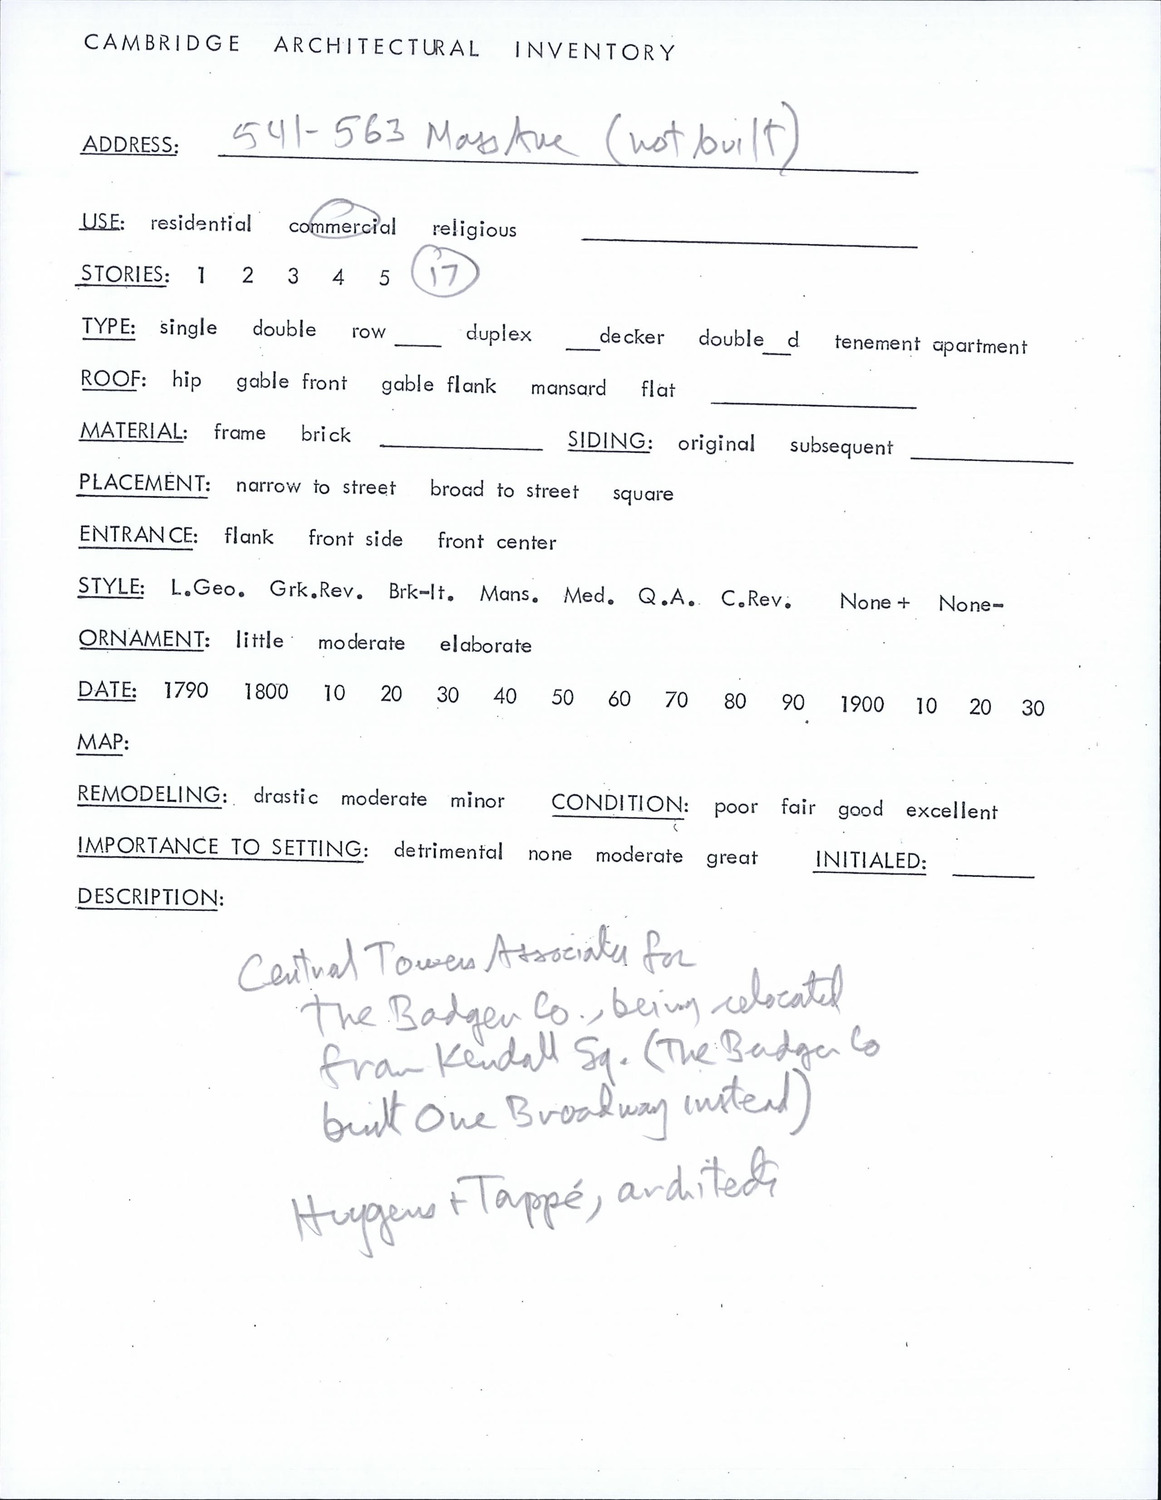 CAMBRIDGE ARCHITECTURAL INVENTORY
ADDRESS: 541-563 Mass Ave (not built)
USE: residential commercial religious
STORIES: 1 2 3 4 5 17
TYPE: single double row ____ duplex ___decker double__d tenement apartment
ROOF: hip gable front gable flank mansard flat
MATERIAL: frame brick SIDING: original subsequent
PLACEMENT: narrow to street broad to street square
ENTRANCE: flank front side front center
STYLE: L.Geo. Grk.Rev. Brk-It. Mans. Med. Q.A. C.Rev. None+ None-
ORNAMENT: little moderate elaborate
DATE: 1790 1800 10 20 30 40 50 60 70 80 90 1900 10 20 30
MAP:
REMODELING: drastic moderate minor CONDITION: poor fair good excellent
IMPORTANCE TO SETTING: detrimental none moderate great INITIALED:
DESCRIPTION:
Central Towers Associates for
the Badger Co., being relocated
from Kendall Sq. (The Badger Co
built One Broadway instead)
Huygens + Tappé, architects